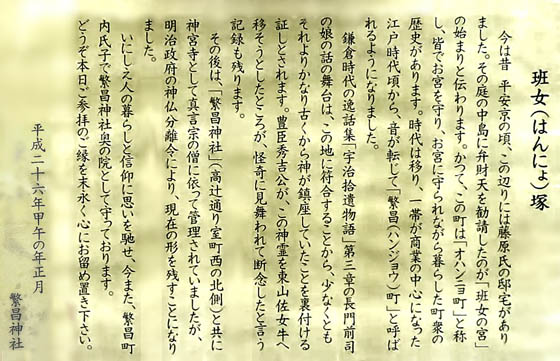 班女(はんにょ)塚
今は昔 平安京の頃、この辺りには藤原氏の邸宅があり
ました。その庭の中島に弁財天を勧請したのが「班女の宮」
の始まりと伝わります。かつて、この町は「オハンニョ町」と称
し、皆でお宮を守り、お宮に守られながら暮らした町衆の
歴史があります。時代は移り、一帯が商業の中心になった
江戸時代頃から、音が転じて「繁昌(ハンジョウ)町」と呼ば
れるようになりました。
鎌倉時代の逸話集「宇治拾遺物語」第三章の長門前司
の娘の話の舞台は、この地に符合することから、少なくとも
それよりかなり古くから神が鎮座していたことを裏付ける
証しとされます。豊臣秀吉公が、この神霊を東山佐女牛へ
移そうとしたところが、怪奇に見舞われて断念したと言う
記録も残ります。
その後は、「繁昌神社」(高辻通り室町西の北側)と共に
神宮寺として真言宗の僧に依って管理されていましたが、
明治政府の神仏分離令により、現在の形を残すことになり
ました。
いにしえ人の暮らしと信仰に思いを馳せ、今また、繁昌町
内氏子で繁昌神社奥の院として守っております。
どうぞ本日ご参拝のご縁を末永く心にお留め置き下さい。
平成二十六年甲午の年正月
繁昌神社